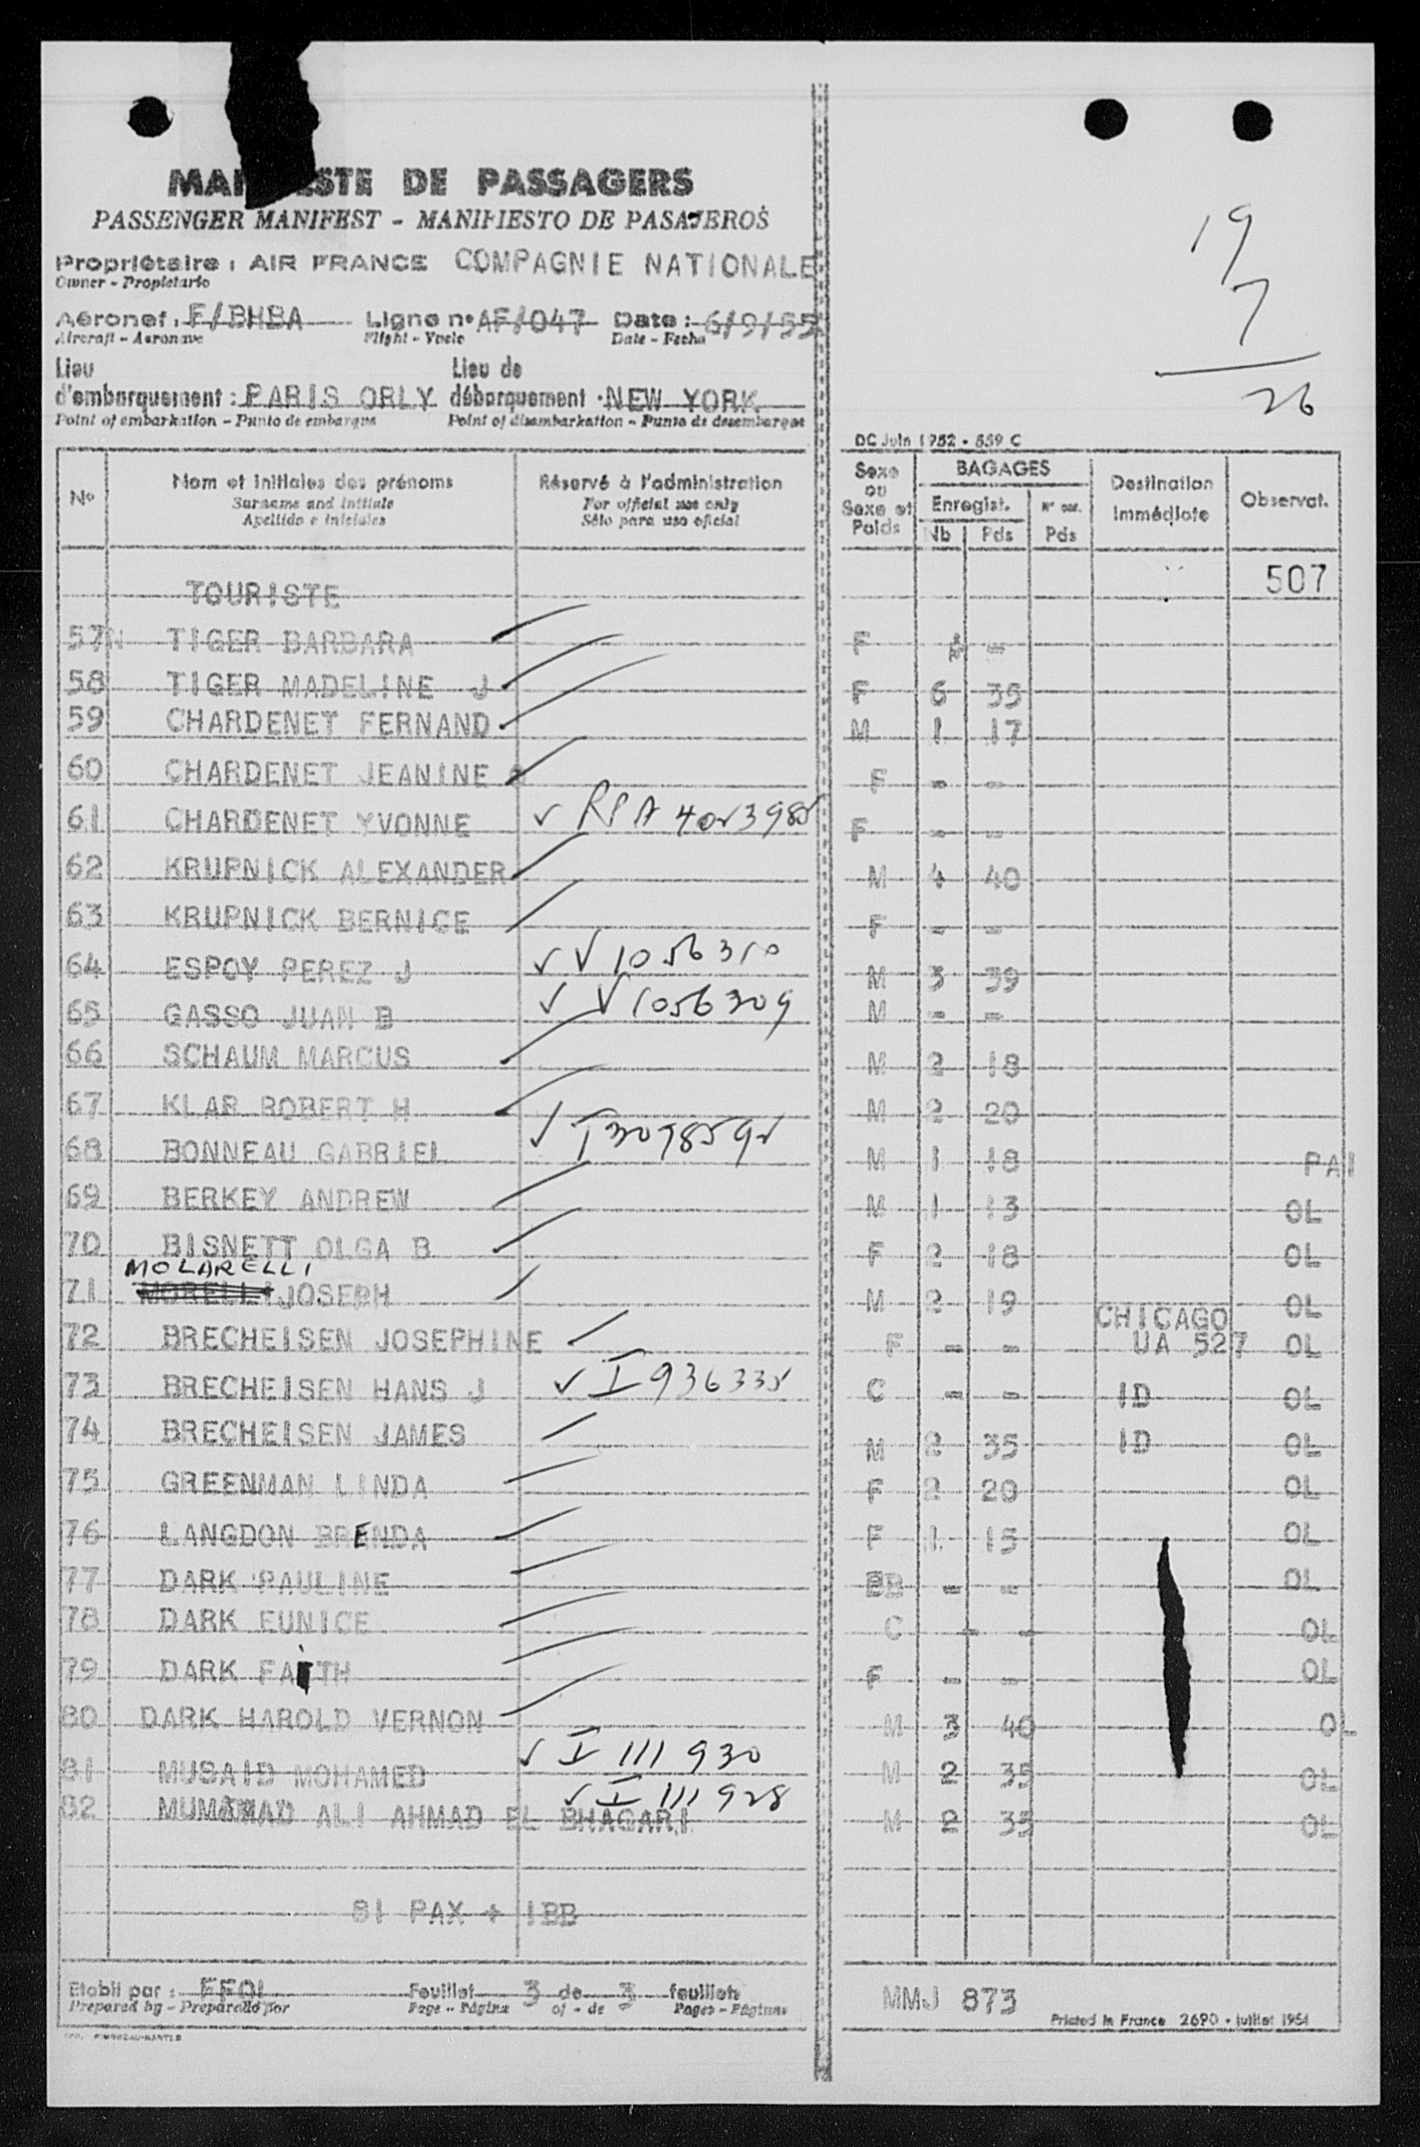 MANIFESTE DE PASSAGERS
PASSENGER MANIFEST - MANIFIESTO DE PASAJEROS
Propriétaire : AIR FRANCE COMPAGNIE NATIONALE
Owner - Propietario
Aéronef : F/BHBA Ligne n° AF/047 Date : 6/9/55
Aircraft - Aeronave Flight - Vuelo Date - Fecha
Lieu d'embarquement : PARIS ORLY Lieu de débarquement : NEW YORK
Point of embarkation - Punto de embarque Point of disembarkation - Punto de desembarque
19
7
26
DC Juin 1952 - 559 C
N° Nom et initiales des prénoms Réservé à l'administration Sexe ou Sexe et Poids BAGAGES Enregist. Nb Pds Pds Destination immédiate Observat.
Surname and initials For official use only
Apellido e iniciales Sólo para uso oficial
TOURISTE 507
57N TIGER BARBARA F -
58 TIGER MADELINE J F 6 35
59 CHARDENET FERNAND M 1 17
60 CHARDENET JEANINE F - -
61 CHARDENET YVONNE ✓ F - -
62 KRUPNICK ALEXANDER M 4 40
63 KRUPNICK BERNICE F - -
64 ESPOY PEREZ J ✓ V 1056310 M 3 39
65 GASSO JUAN B ✓ V 1056309 M - -
66 SCHAUM MARCUS M 2 18
67 KLAR ROBERT H M 2 20
68 BONNEAU GABRIEL ✓ M 1 18 PAI
69 BERKEY ANDREW M 1 13 OL
70 BISNETT OLGA B F 2 18 OL
MOLARELLI
71 MORELLI JOSEPH M 2 19 OL
72 BRECHEISEN JOSEPHINE F - - CHICAGO UA 527 OL
73 BRECHEISEN HANS J ✓ C - - ID OL
74 BRECHEISEN JAMES M 2 35 ID OL
75 GREENMAN LINDA F 2 20 OL
76 LANGDON BRENDA F 1 15 OL
77 DARK PAULINE BB - - OL
78 DARK EUNICE C - - OL
79 DARK FAITH F - - OL
80 DARK HAROLD VERNON M 3 40 OL
81 MUSAID MOHAMED ✓ I 111 930 M 2 35 OL
82 MUMAHMAD ALI AHMAD EL BHAGARI ✓ I 111 928 M 2 35 OL
81 PAX + 1BB
Etabli par : Feuillet 3 de 3 feuillets MMJ 873
Prepared by - Preparado por Page - Página of - de Pages - Páginas Printed in France 2690 - Juillet 1954